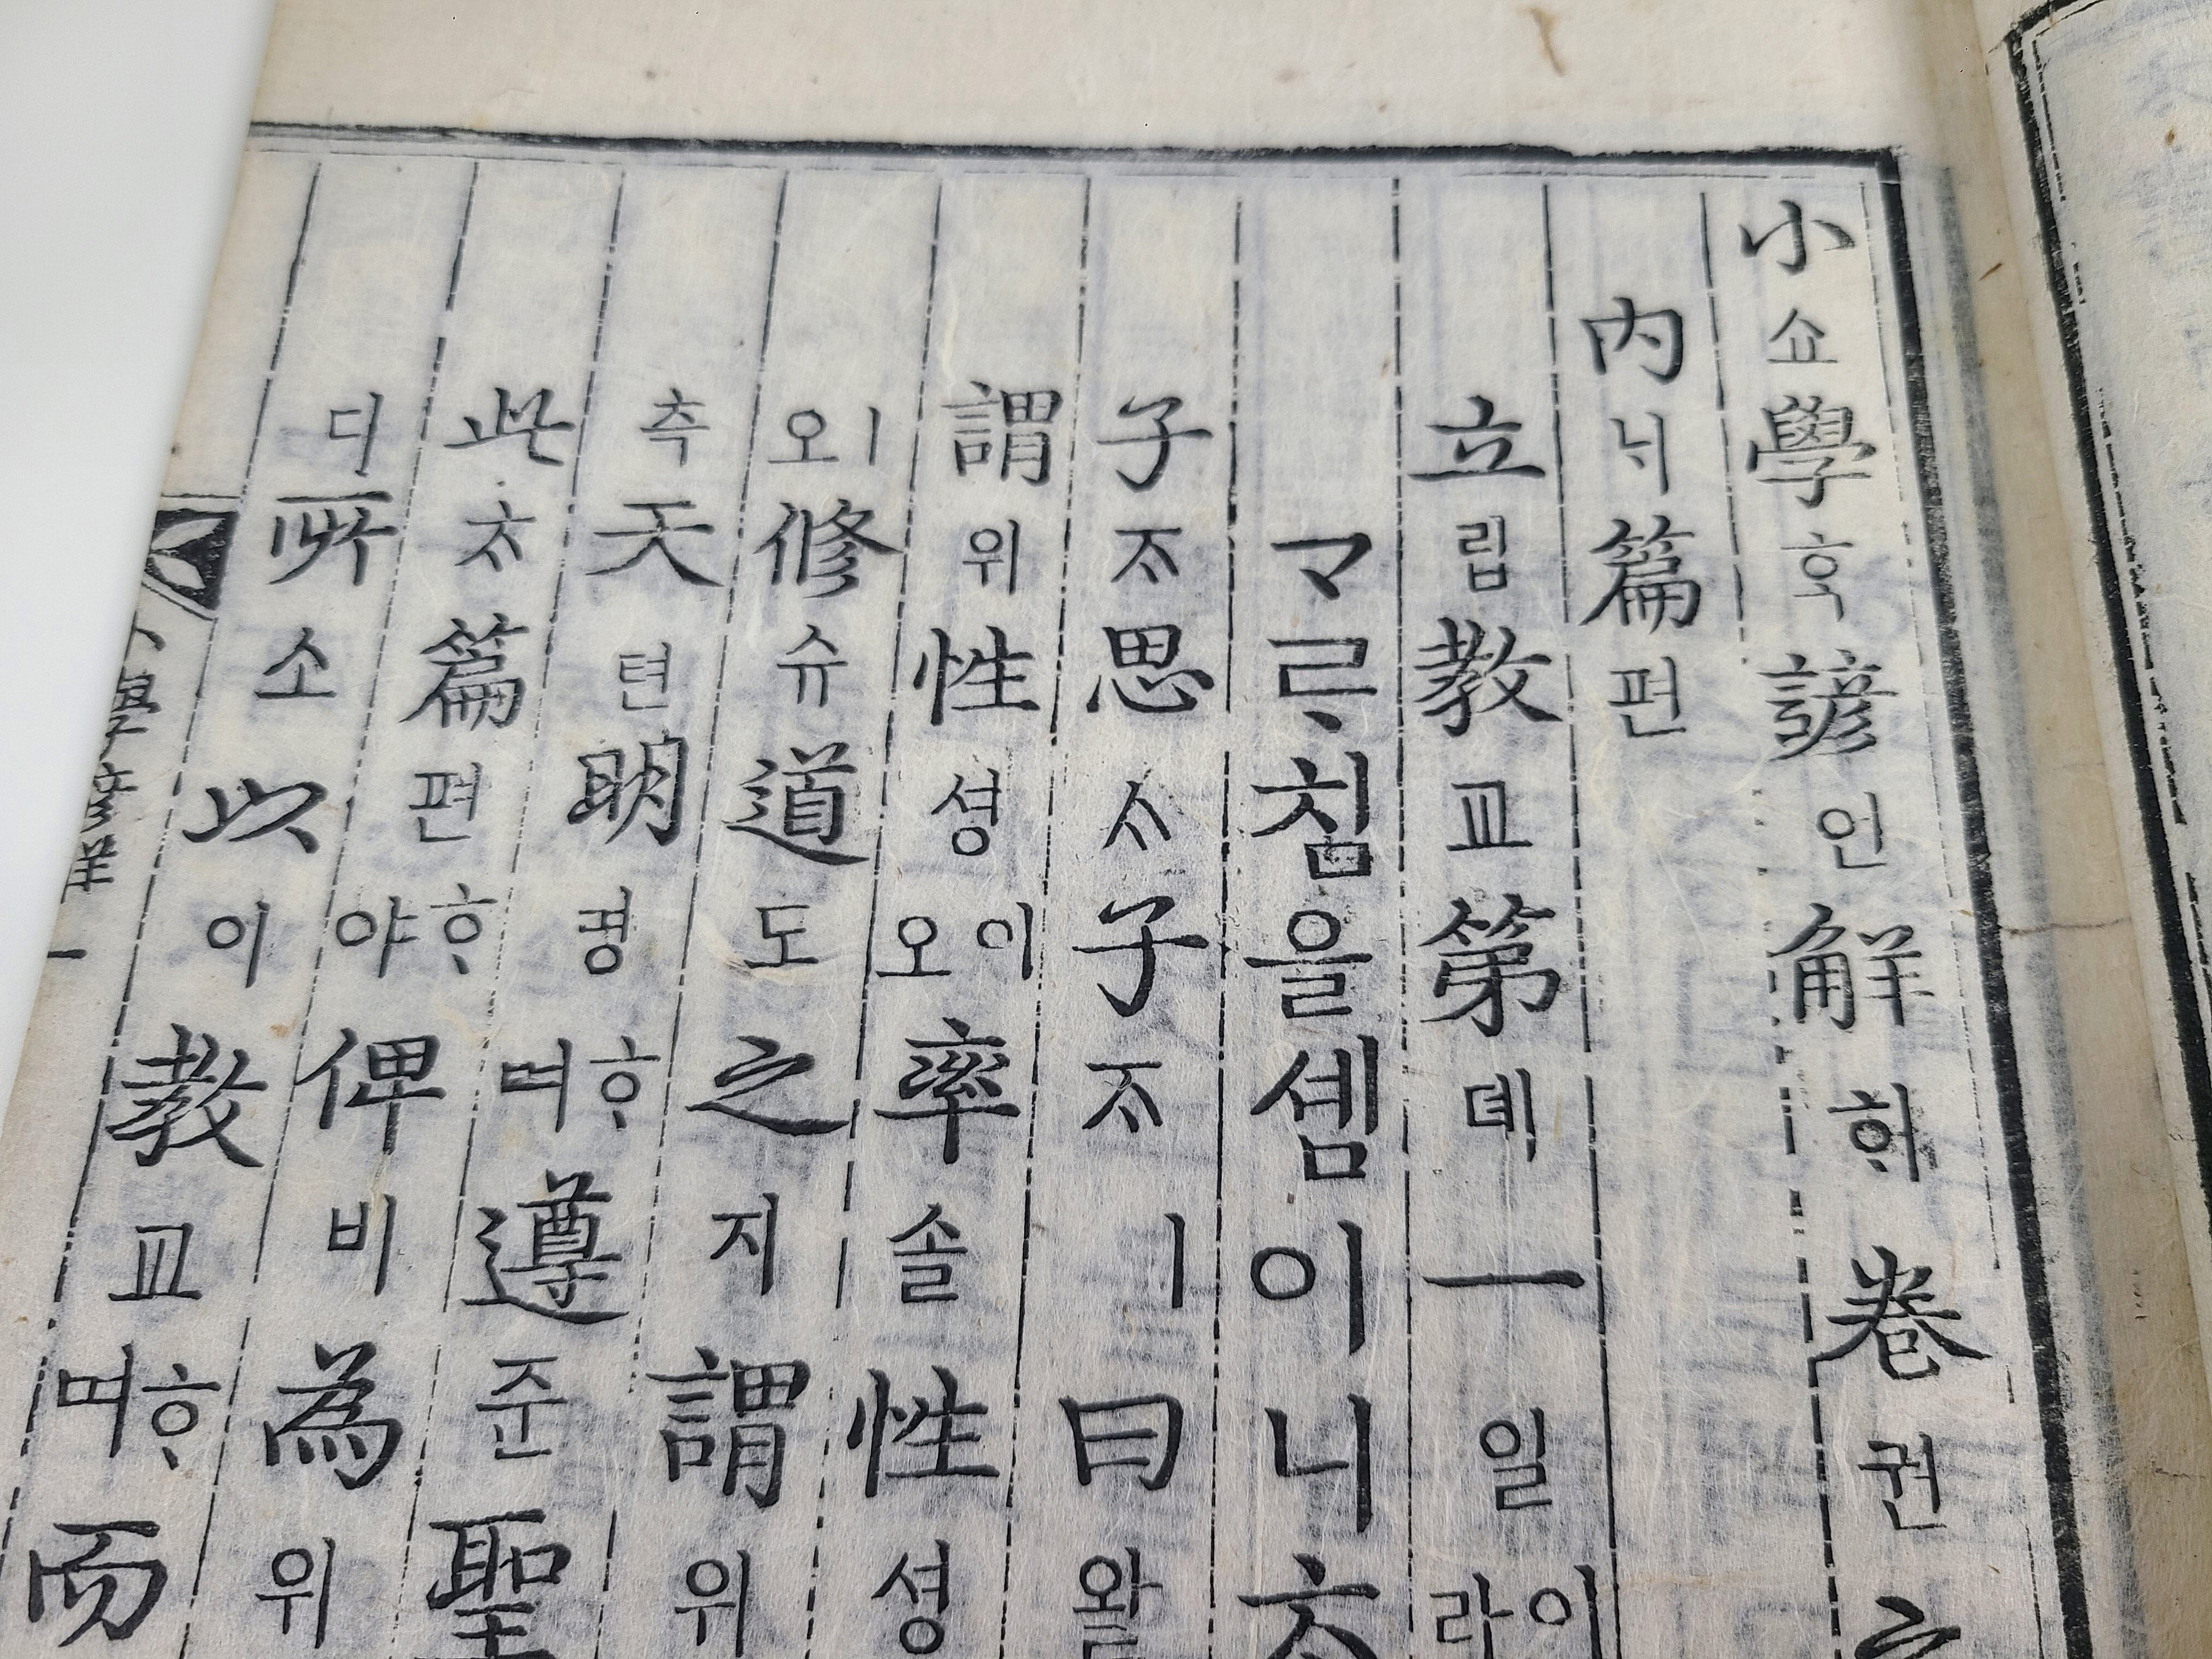 小쇼學ᄒᆞᆨ諺언解ᄒᆡ卷권之
內ᄂᆡ篇편
立립敎교第뎨一일이라
ᄀᆞᄅᆞ침을솀이니
子ᄌᆞ思ᄉᆞ子ᄌᆞㅣ曰왈
謂위性셩이오率솔性셩
ㅣ오修슈道도之지謂위
측天텬明명ᄒᆞ며遵준聖
此ᄎᆞ篇편ᄒᆞ야俾비為위
디所소以이敎교ᄒᆞ며而
小學諺解 一